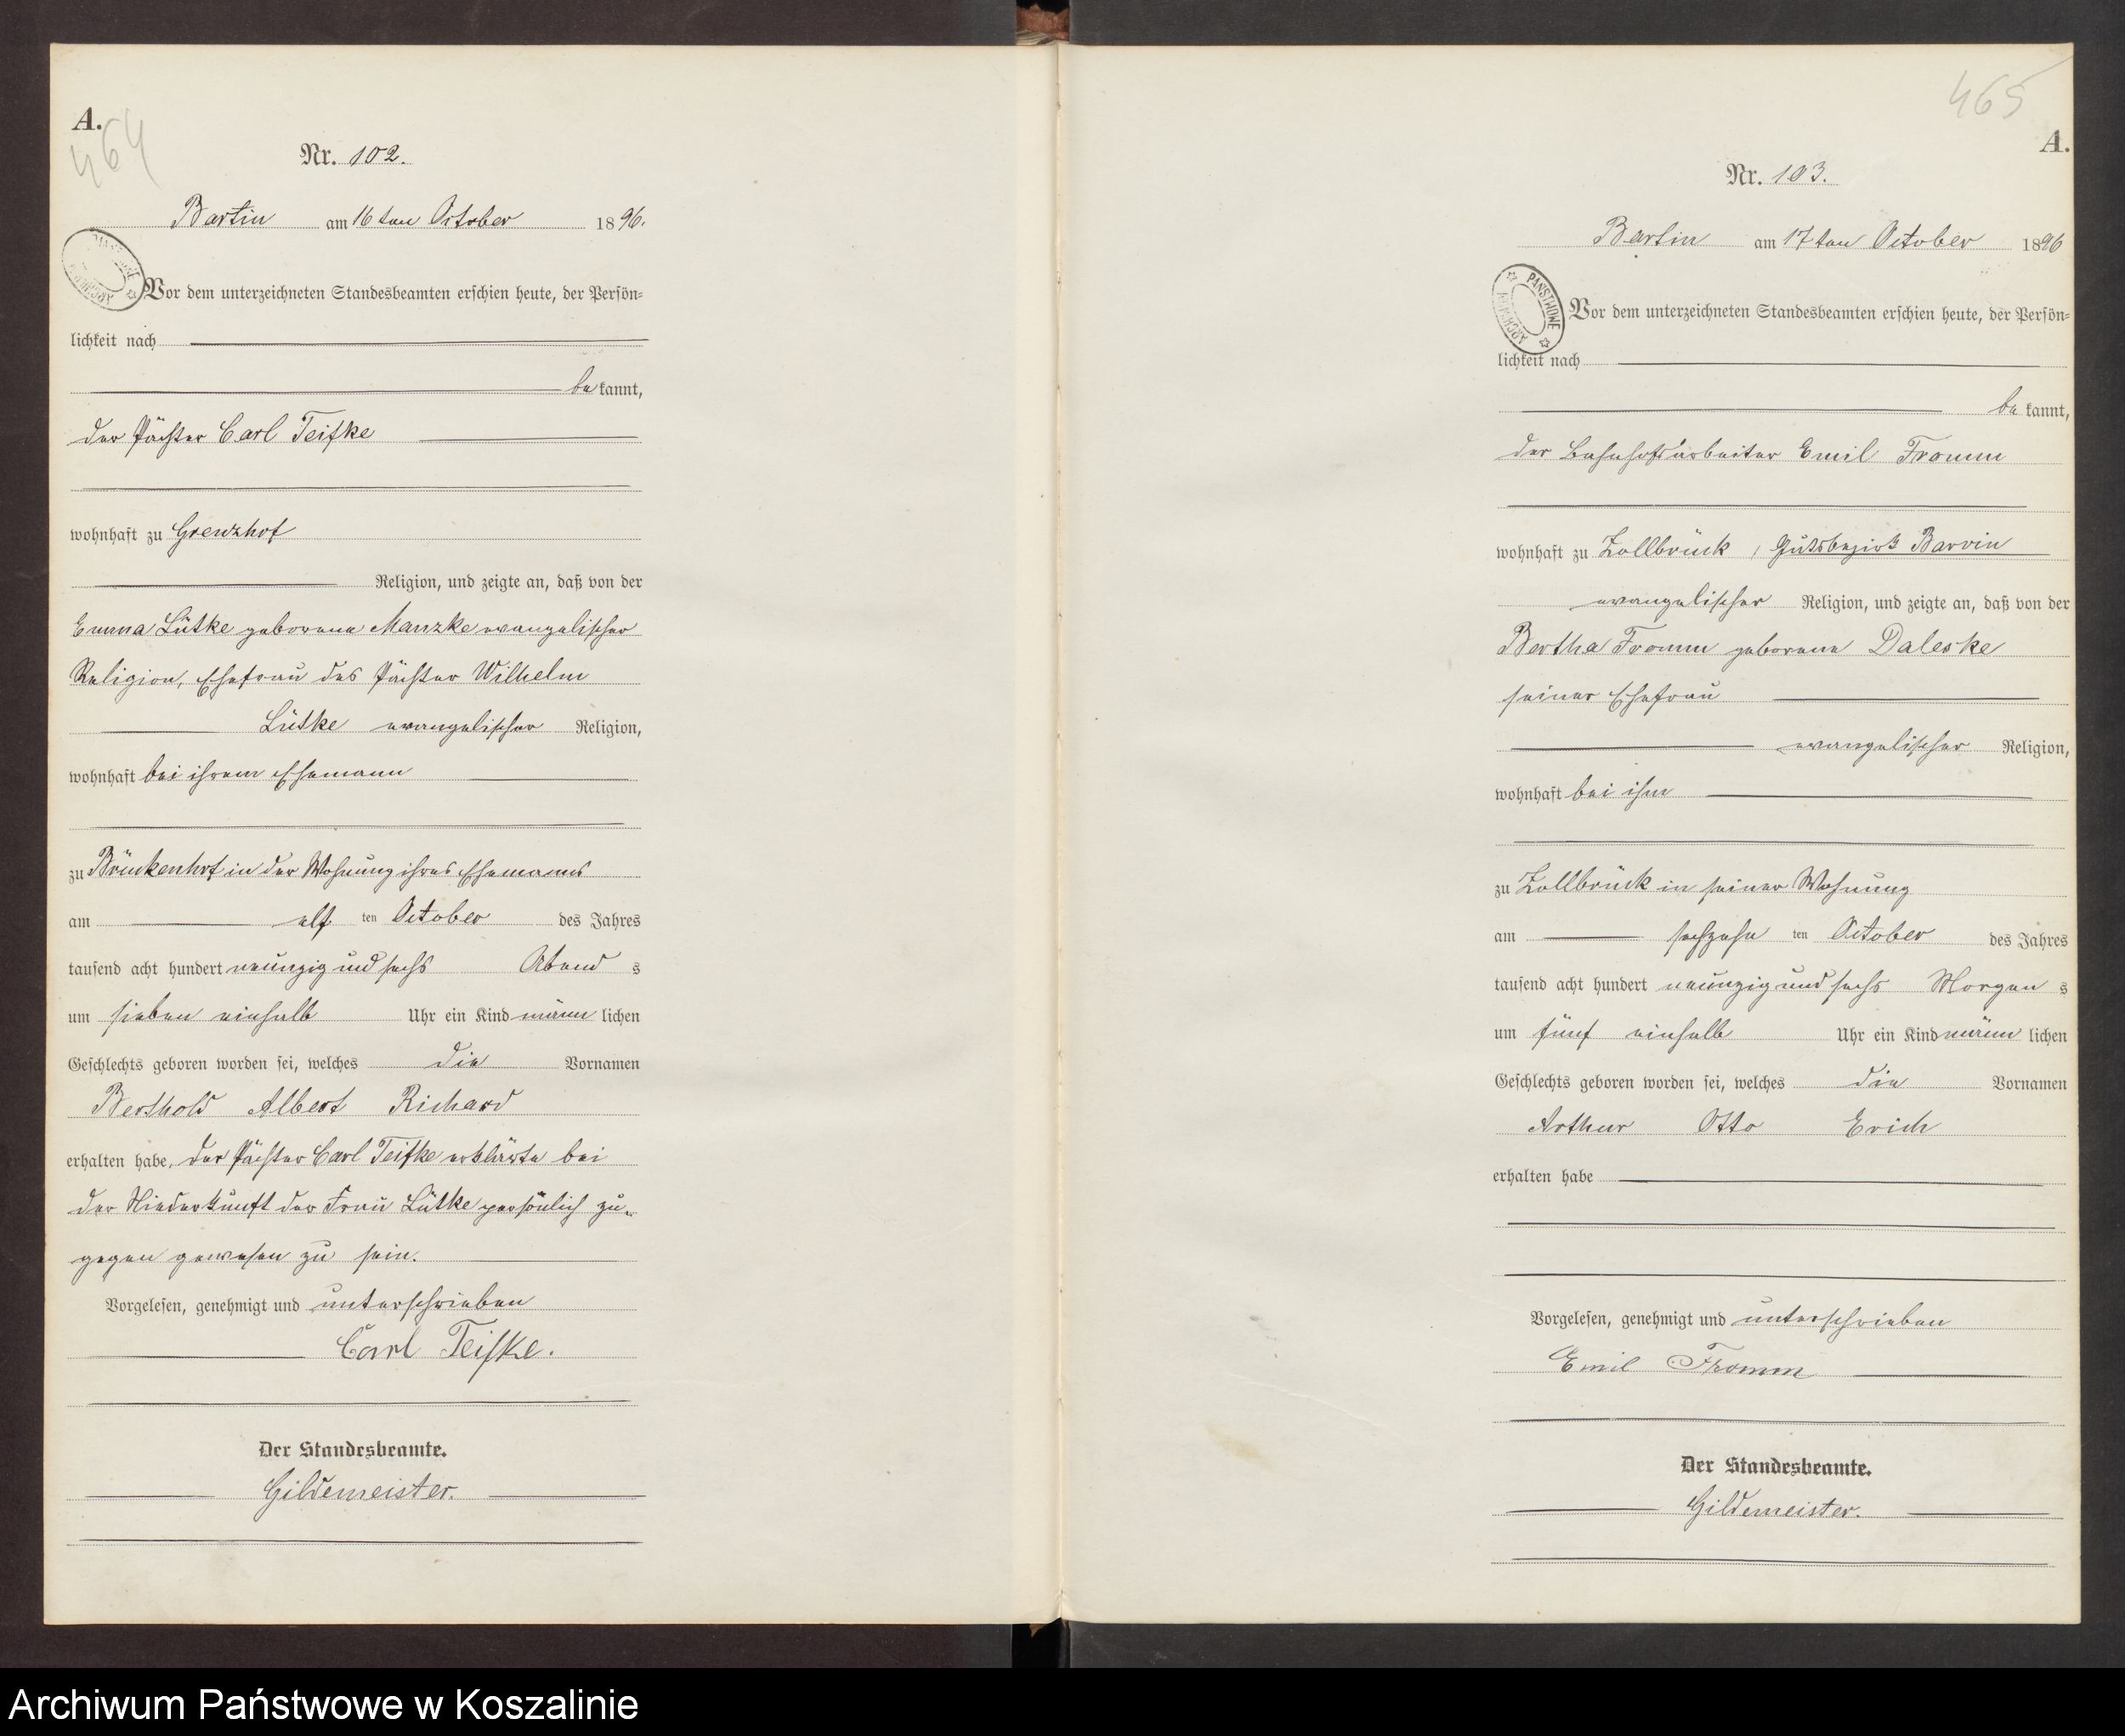 A.
464
Nr. 102.
Bartin am 16ten October 1896.
Vor dem unterzeichneten Standesbeamten erschien heute, der Persön-
lichkeit nach
bekannt,
der Pächter Carl Teifke
wohnhaft zu Grenzhof
Religion, und zeigte an, daß von der
Emma Lütke geborene Manzke evangelischer
Religion, Ehefrau des Pächter Wilhelm
Lütke evangelischer Religion,
wohnhaft bei ihrem Ehemann
zu Brünkenhof in der Wohnung ihres Ehemanns
am elf ten October des Jahres
tausend acht hundert neunzig und sechs Abend s
um sieben einhalb Uhr ein Kind männlichen
Geschlechts geboren worden sei, welches die Vornamen
Berthold Albert Richard
erhalten habe. Der Pächter Carl Teifke erklärte bei
der Niederkunft der Frau Lütke persönlich zu-
gegen gewesen zu sein.
Vorgelesen, genehmigt und unterschrieben
Carl Teifke.
Der Standesbeamte.
Gildemeister.
465
A.
Nr. 103.
Bartin am 17ten October 1896
PAŃSTWOWE ARCHIWUM
Vor dem unterzeichneten Standesbeamten erschien heute, der Persön-
lichkeit nach
bekannt,
der Bahnhofsarbeiter Emil Fromm
wohnhaft zu Zollbrück, Gutsbezirk Barvin
evangelischer Religion, und zeigte an, daß von der
Bertha Fromm geborene Daleske
seiner Ehefrau
evangelischer Religion,
wohnhaft bei ihm
zu Zollbrück in seiner Wohnung
am sechzehn ten October des Jahres
tausend acht hundert neunzig und sechs Morgen s
um fünf einhalb Uhr ein Kind männlichen
Geschlechts geboren worden sei, welches die Vornamen
Arthur Otto Erich
erhalten habe
Vorgelesen, genehmigt und unterschrieben
Emil Fromm
Der Standesbeamte.
Gildemeister.
Archiwum Państwowe w Koszalinie